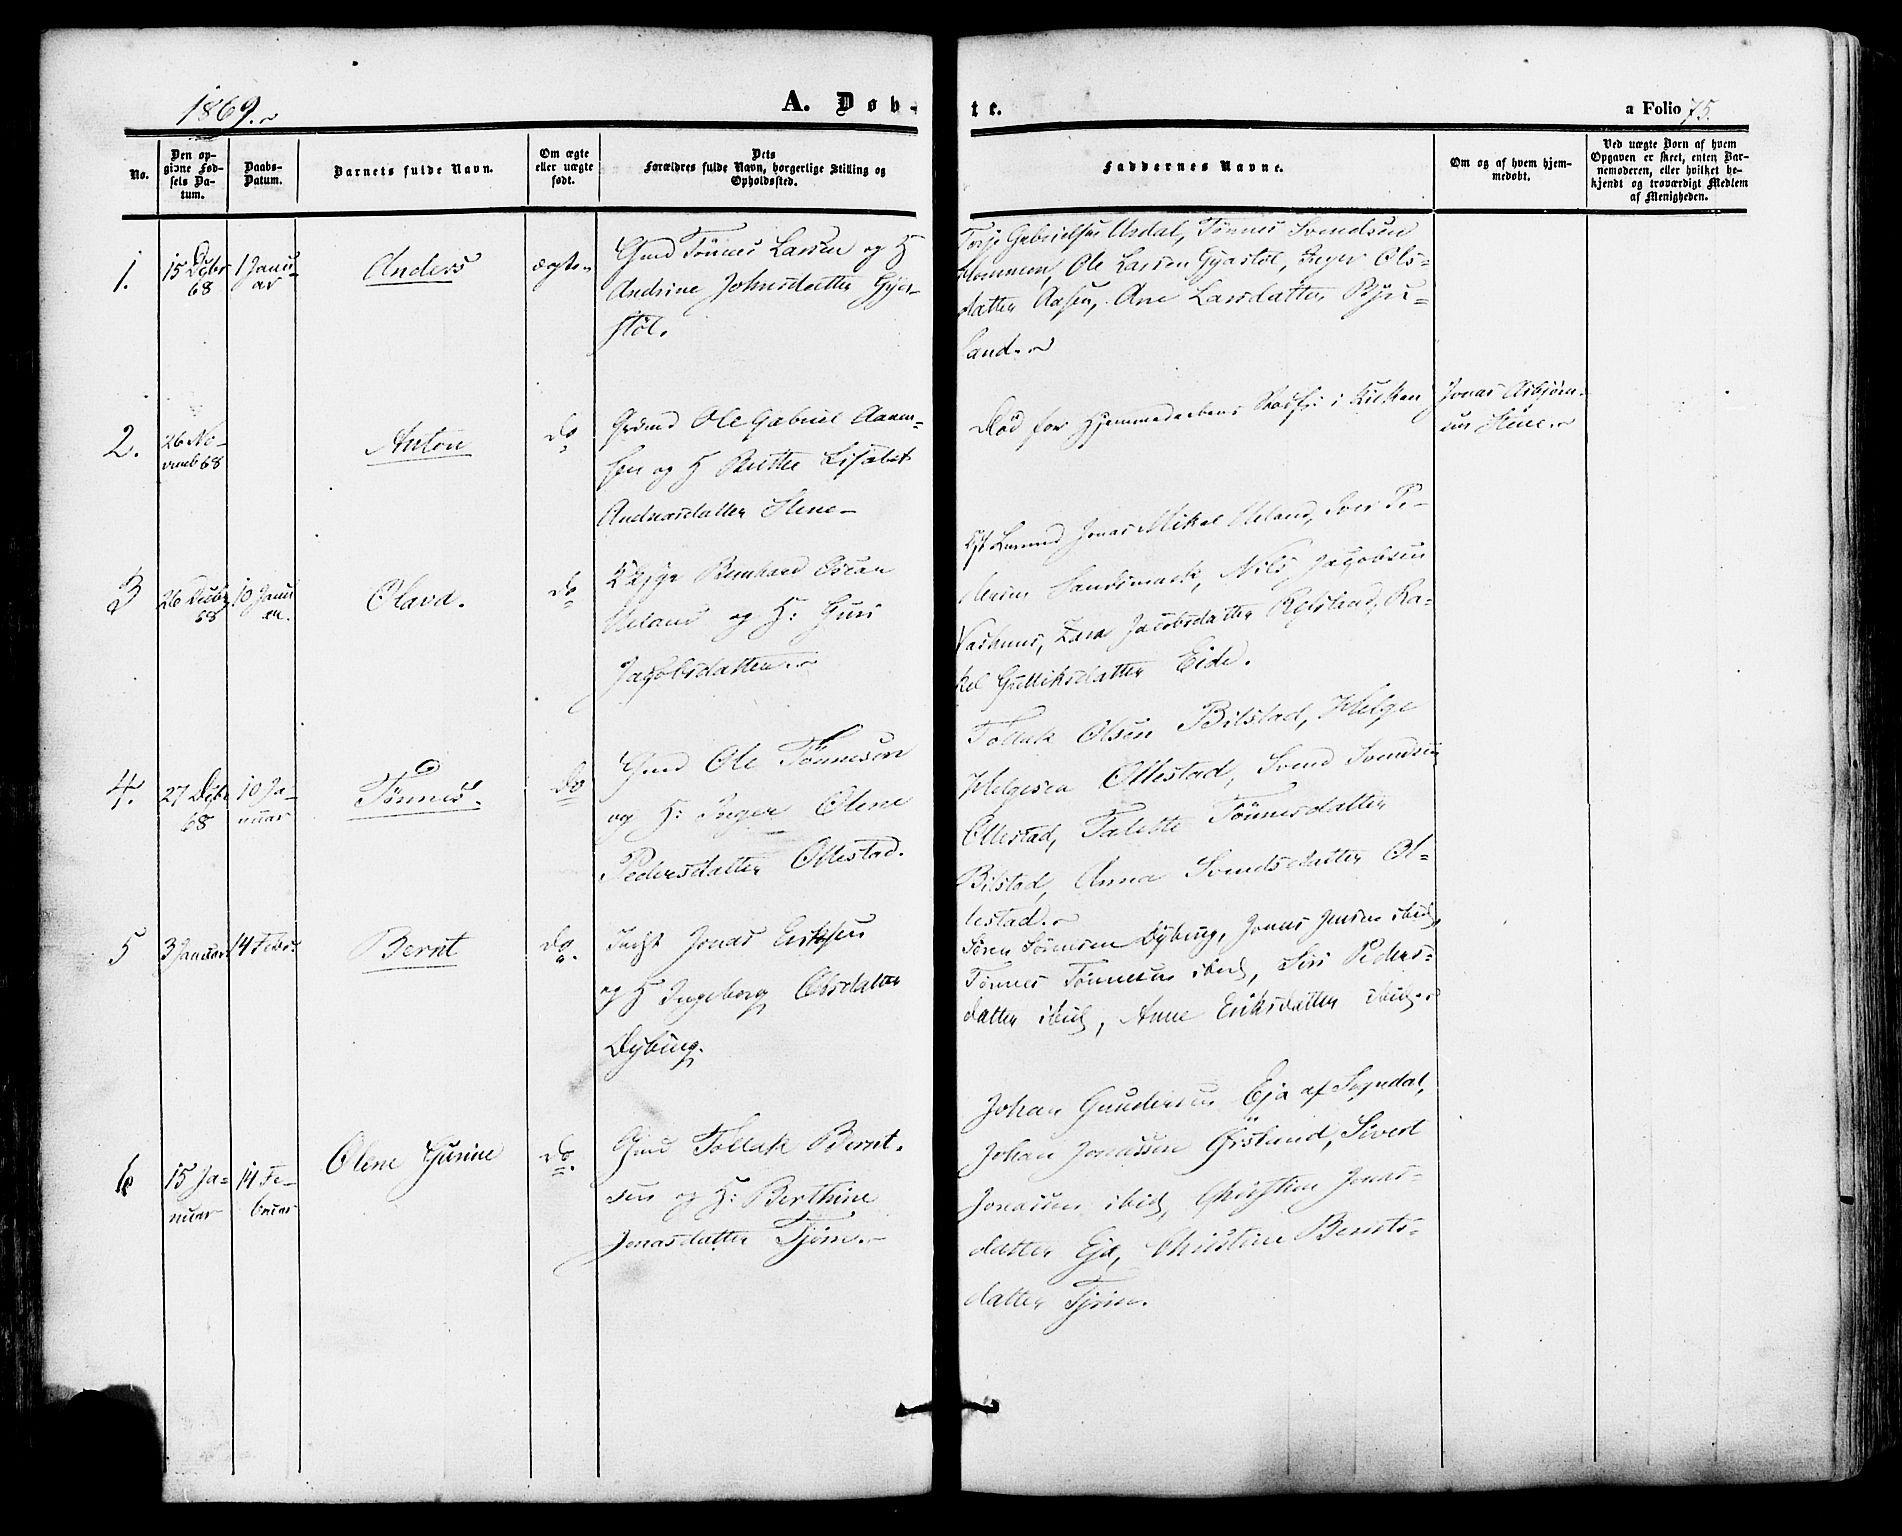 1869.
A. Døb-
te.
a Folio 75.
No.
Den op-
givne Fød-
sels Da-
tum.
Daabs-
Datum.
Barnets fulde Navn.
Om ægte
eller uægte
født.
Dets
Forældres fulde Navn, borgerlige Stilling og
Opholdssted.
Faddernes Navne.
Om og af hvem hjem-
medøbt.
Ved uægte Børn af hvem
Opgaven er skeet, enten Bar-
nemoderen, eller hvilket be-
kjendt og troværdigt Medlem
af Menigheden.
1.
15 Decbr
68
1 Janu-
ar
Anders
ægte
Gmd Tønnes Larsen og H
Andrine Johnsdatter Gya-
støl.
Terje Gabrielsen Urdal, Tønnes Svendsen
Ole Larsen Gyastøl, Inger Ols-
datter Aasen, Ane Larsdatter Bju-
land.
2.
26 No-
vemb 68
Anton
do
Ole Gabriel
sen og H Berthe Lisabet
Andreasdatter Hene
Død før Hjemmedaabens i Kirken
Jonas Asbjørn-
sen Hene.
3
26 Decbr
68
10 Janu
ar.
Olavd.
do
Bernhard Esaan
Ueland og H: Guri
Jacobsdatter.
Jonas Mikal Ueland, Sven Pe-
Sandsmark, Nils Jacobsen
Jacobsdatter Refsland, Ra-
kel Gullliksdatter Eide.
4.
27 Decbr
68
10 Ja-
nuar
Tønnes.
do
Gmd Ole Tønnesen
og H: Inger Olene
Pedersdatter Ollestad.
Tollak Olsen Bilstad, Helge
Helgesen Ollestad, Svend Svendsen
Ollestad, Talette Tønnesdatter
Bilstad, Anna Svendsdatter Ol-
lestad.
5
3 Januar
14 Febr
Bernt
do.
Indst Jonas Eriksen
og H Ingeborg Olsdatter
Dybing.
Søren Sørensen Dybing, Jonas Jensen ibid,
Tønnes Tønnesen ibid, Siri Peders-
datter ibid, Anne Eriksdatter ibid.
6
15 Ja-
nuar
14 Fe-
bruar
Olene Gurine
do.
Gmd Tollak Bernt-
sen og H: Berthine
Jonasdatter Tjørn.
Johan Gundersen Eja af Sogndal,
Johan Jonassen Ørsland, Sivert
Jonassen ibid, Christine Jonas-
datter Eja, Christine Bernts-
datter Tjørn.